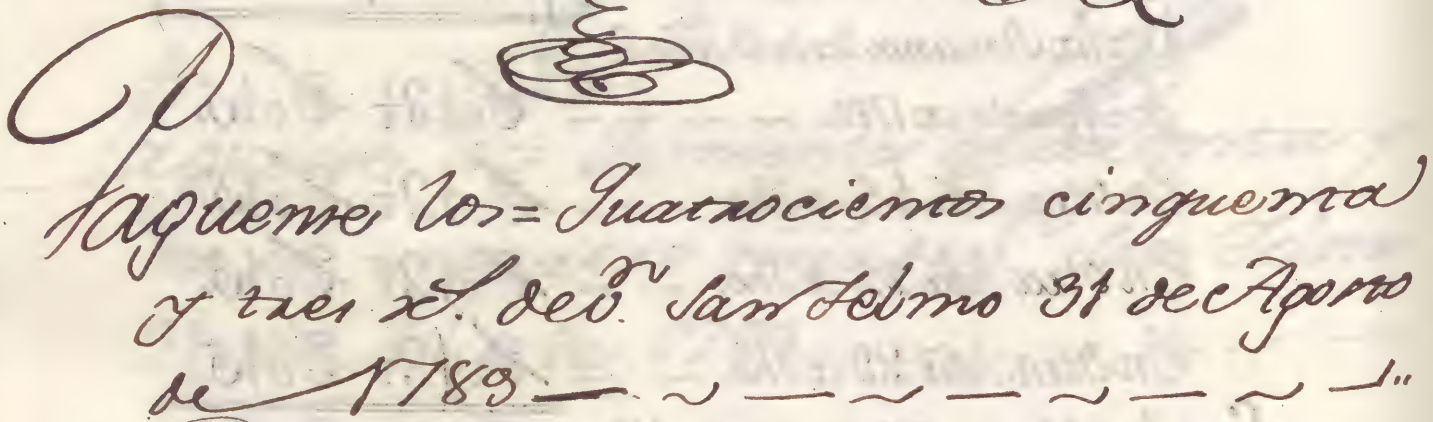 Paguense los = Quatrocientos cinquenta
y tres rs. de vn. San Telmo 31 de Agosto
de 1789